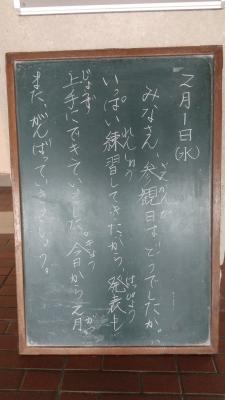 2月1日(水)
みなさん 参観日はどうでしたか。
いっぱい練習してきたから、発表も
上手にできていました。今日から2月
また、がんばっていきましょう。